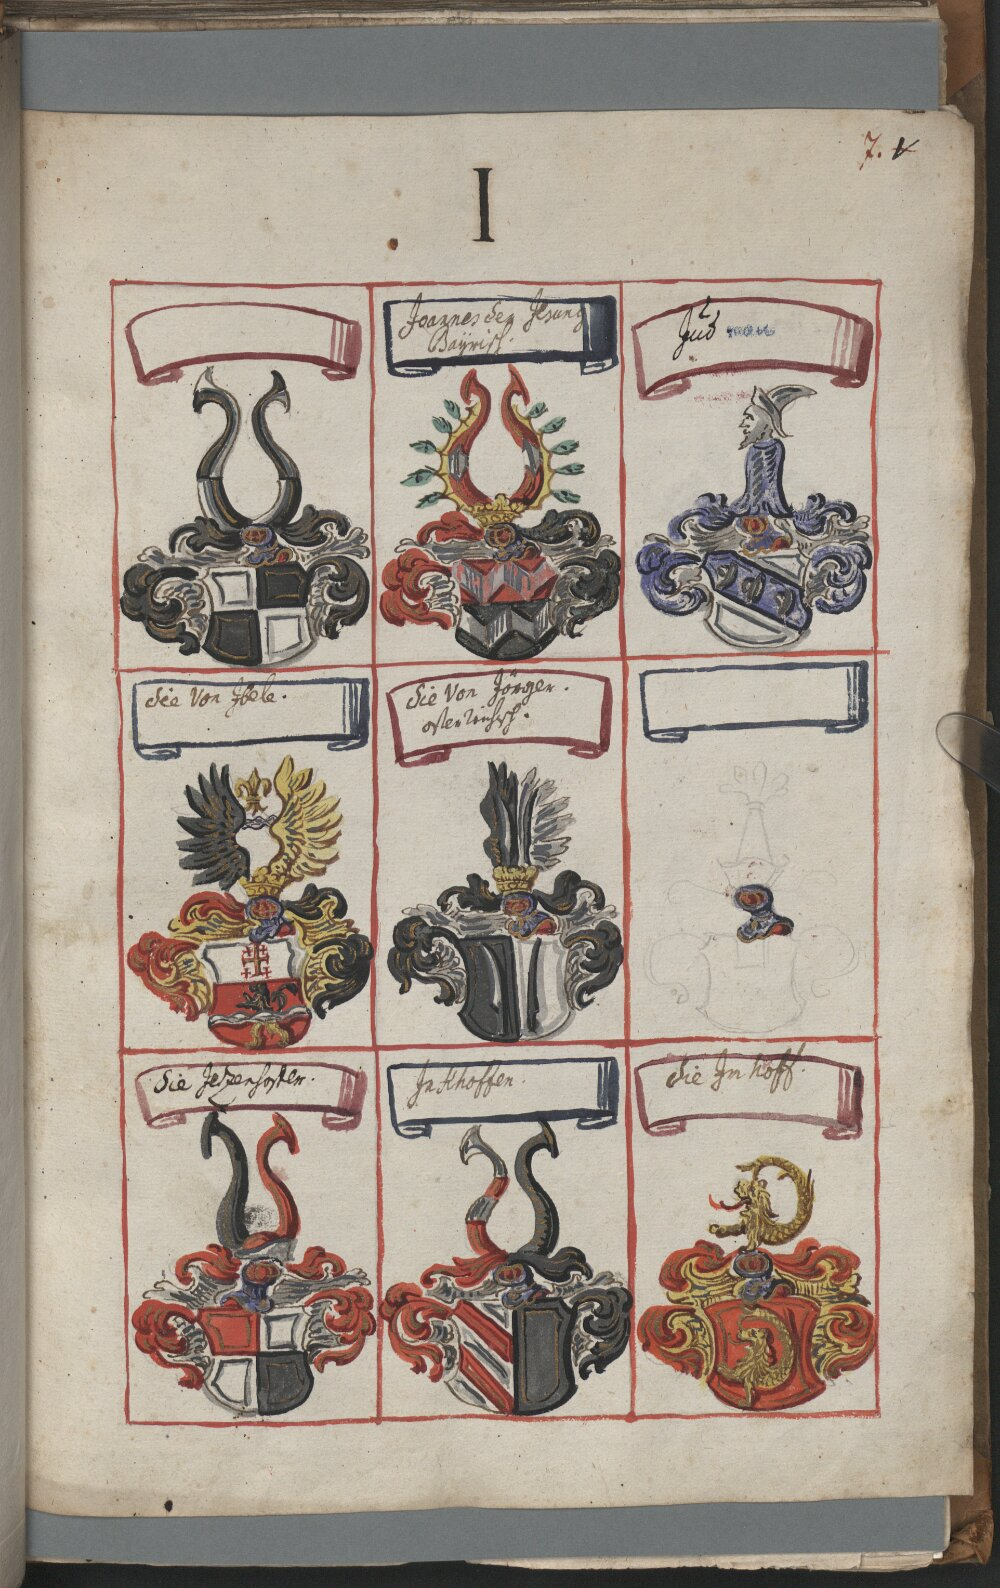 7.
I
Joannes der Jesung
Bayrisch.
Jud
die Von Ybele.
die Von Jörger.
osterreichisch.
die Jetzenhoffer.
Jnkhoffen.
die Jm hoff.